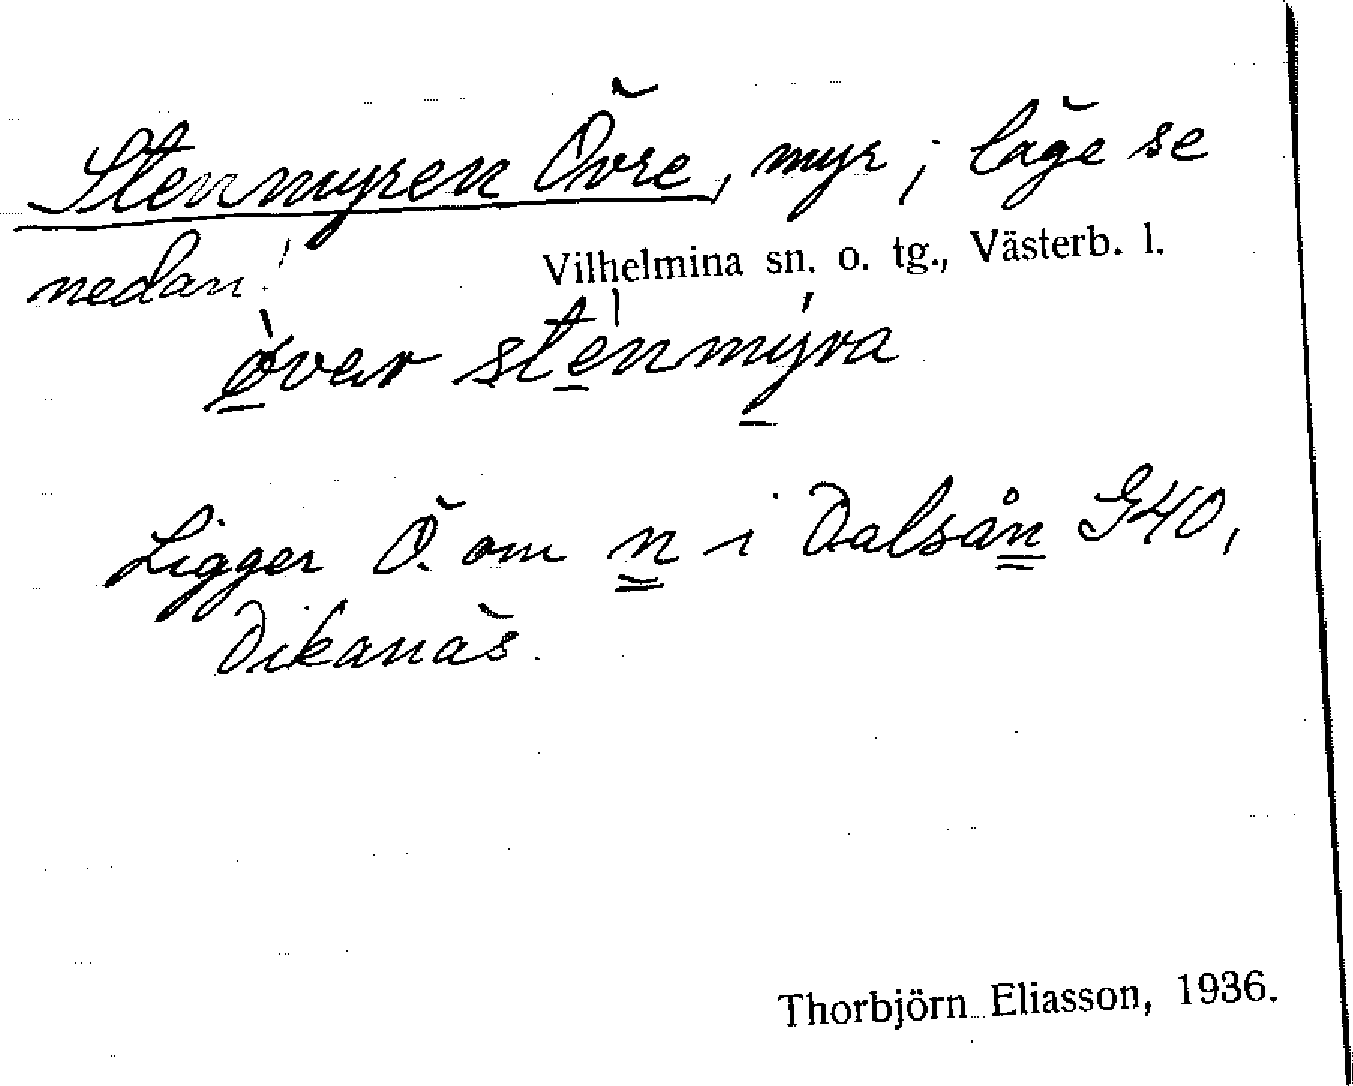 Stenmyren Övre, myr; läge se
nedan! Vilhelmina sn. o. tg., Västerb. l.
øvar stenmyra
Ligger Ö. om n i Dalsån G40,
Dikanäs.
Thorbjörn Eliasson, 1936.